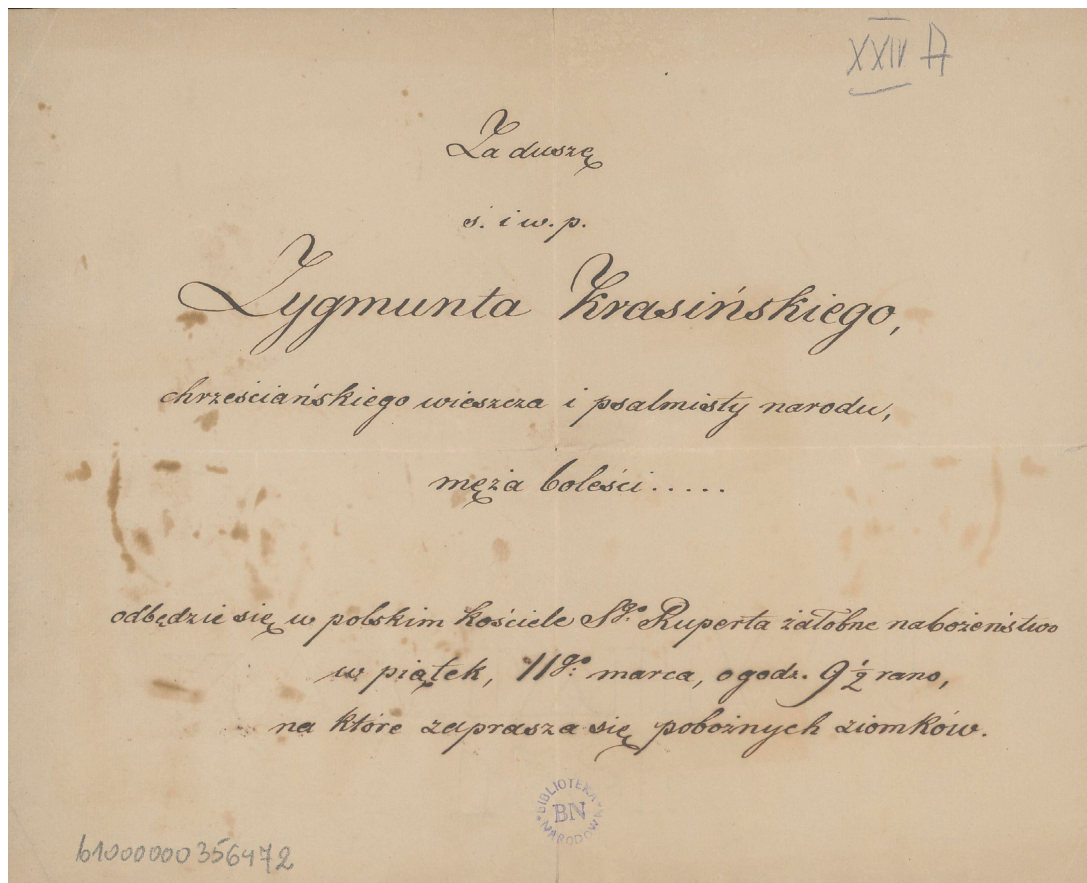 XXIV A
Za duszę
ś. i w. p.
Zygmunta Krasińskiego,
chrześciańskiego wieszcza i psalmisty narodu,
męża boleści.....
odbędzie się w polskim kościele Sgo. Ruperta żałobne nabożeństwo
w piątek, 11go. marca, o godz. 9 1/2 rano,
na które zaprasza się pobożnych ziomków.
BIBLIOTEKA NARODOWA
BN
b1000000356472